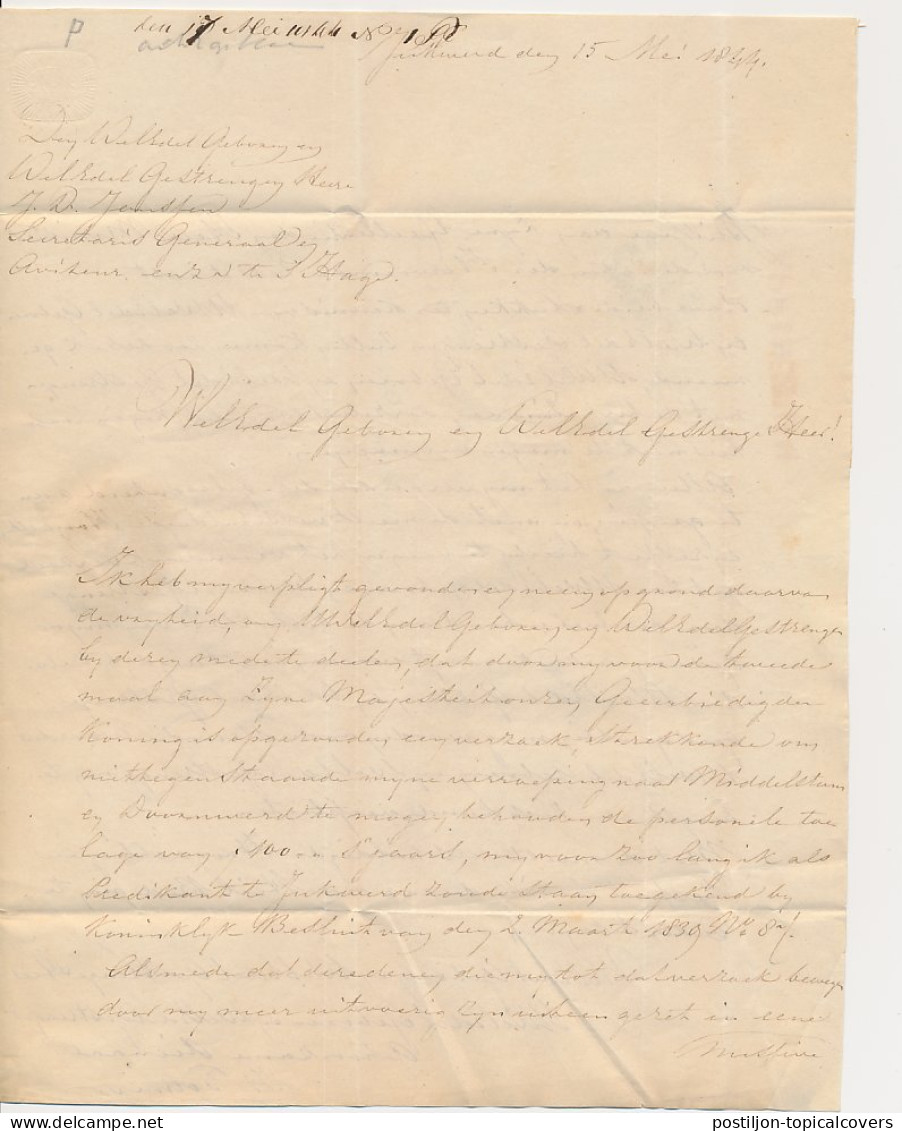 P
den 17 Mei 1844 No 1
Jukwerd den 15 Mei 1844.
Den WelEdel Geboren en
WelEdel Gestrengen Heere
J. D. Janssen
Secretaris Generaal en
Adviseur enz. te 's Hage.
WelEdel Geboren en WelEdel Gestrenge Heer!
Ik heb my verpligt gevonden en neem op grond daarvan
de vryheid, om UWelEdel Geboren en WelEdel Gestrengen
by dezen mede te deelen, dat door my voor de tweede
maal aan Zyne Majesteit onzen Geëerbiedigden
Koning is opgezonden een verzoek, strekkende om
niettegenstaande myne verroeping naar Middelstum
en Doornwerd te mogen behouden de personele toe
lage van ƒ100.- 's jaars, my voor zoo lang ik als
Predikant te Jukwerd zoude staan toegekend by
Koninklyk Besluit van den 2 Maart 1839 No 8
Alsmede dat de redenen die my tot dat verzoek bewegen
door my meer uitvoerig zyn uiteen gezet in eene
Missive
postiljon-topicalcovers